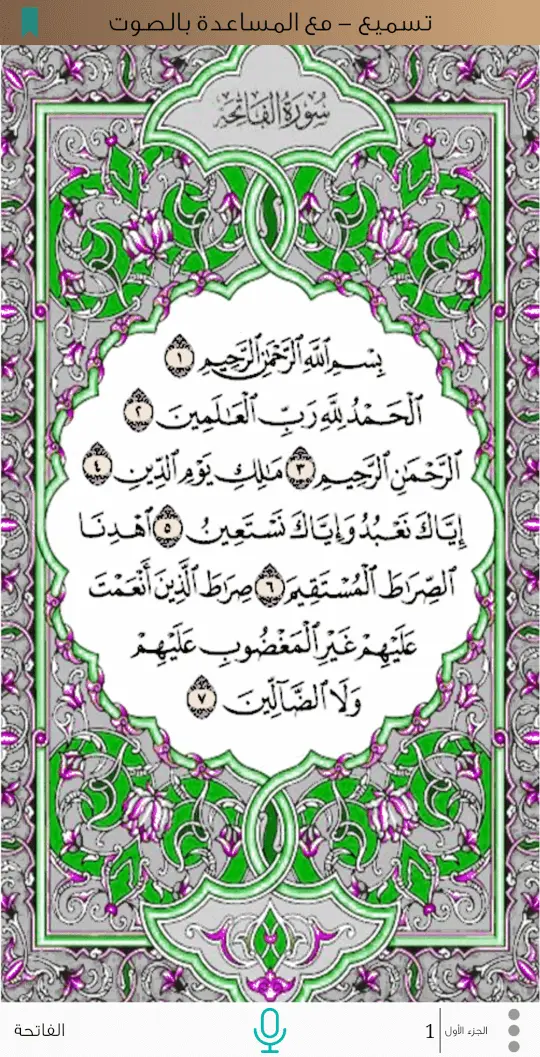 تسميع – مع المساعدة بالصوت
سُورَةُ الفَاتِحَة
بِسْمِ ٱللَّهِ ٱلرَّحْمَٰنِ ٱلرَّحِيمِ ١
ٱلْحَمْدُ لِلَّهِ رَبِّ ٱلْعَٰلَمِينَ ٢
ٱلرَّحْمَٰنِ ٱلرَّحِيمِ ٣ مَٰلِكِ يَوْمِ ٱلدِّينِ ٤
إِيَّاكَ نَعْبُدُ وَإِيَّاكَ نَسْتَعِينُ ٥ ٱهْدِنَا
ٱلصِّرَٰطَ ٱلْمُسْتَقِيمَ ٦ صِرَٰطَ ٱلَّذِينَ أَنْعَمْتَ
عَلَيْهِمْ غَيْرِ ٱلْمَغْضُوبِ عَلَيْهِمْ
وَلَا ٱلضَّآلِّينَ ٧
الجزء الأول 1 الفاتحة